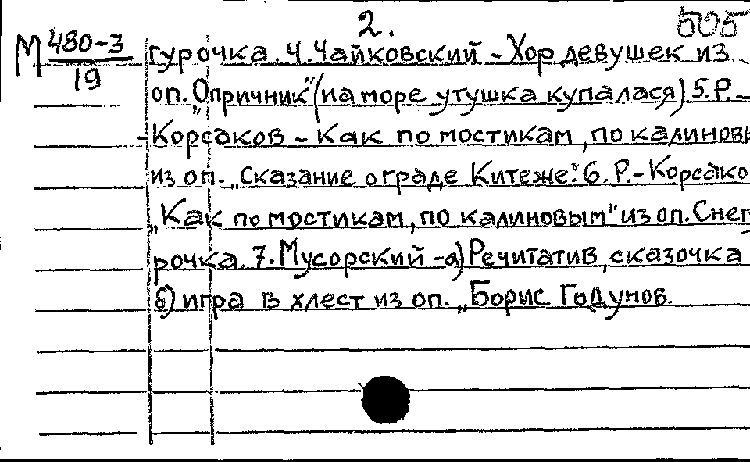 2.
505
М 480-3
19
гурочка. Ч. Чайковский - Хор девушек из
оп. „Опричник" (на море утушка купалася) 5. Р.-
-Корсаков - Как по мостикам, по калиновы
из оп. „Сказание о граде Китеже". 6. Р.-Корсако
„Как по мостикам, по калиновым" из оп. Снег
рочка. 7. Мусорский - а) Речитатив, сказочка
б) игра в хлест из оп. „Борис Годунов.